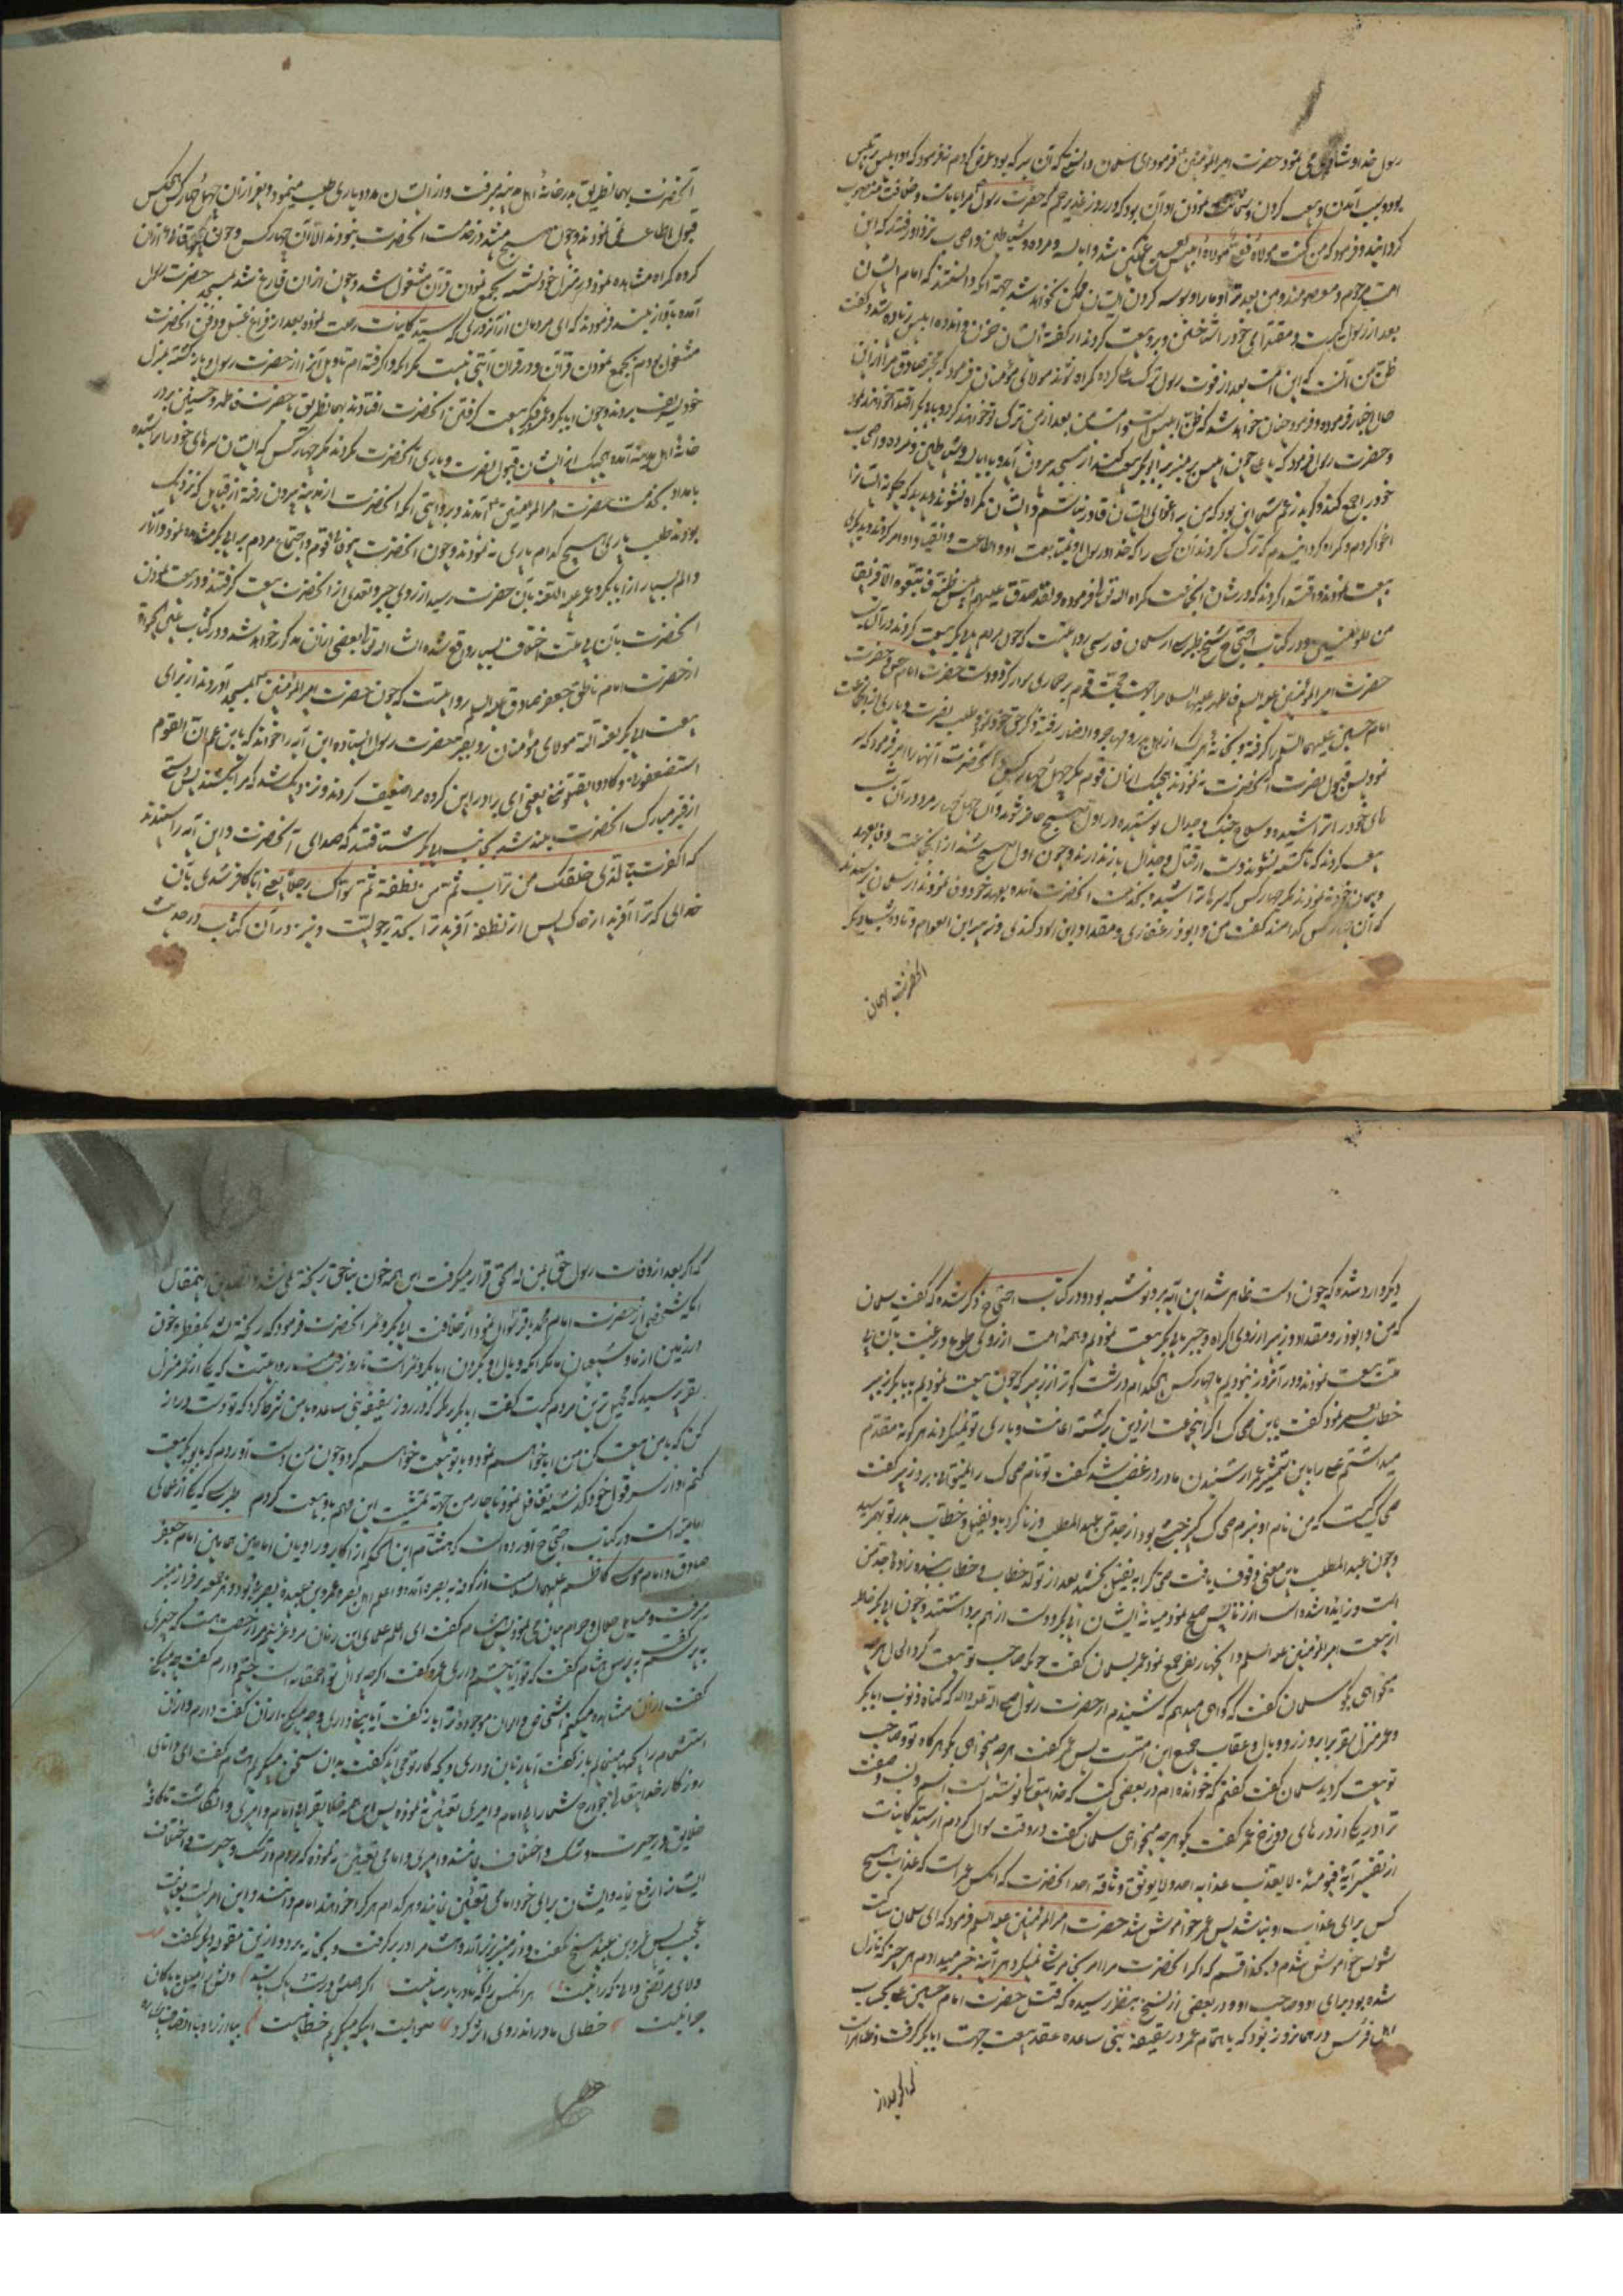 رسول خدا و شادی می نمود حضرت امیرالمؤمنین فرمود ای سلمان دانستی که آن پیر که بود عرض کردم نه فرمود که او ابلیس
بود و سبب آمدن و بیعت کردن و شماتت نمودن او آن بود که در روز غدیر خم که حضرت رسول مرا بامامت و خلافت منصوب
کردانید و فرمود که من کنت مولاه فعلی مولاه ابلیس لعین غمکین شد و ابالسه و مرده و شیاطین و اصحاب نزد او رفتند که این
امت مرحوم و معصومند و من بعد ترا و ما را وسوسه کردن ایشان ممکن نخواهد شد جهة آنکه دانستند که امام ایشان
بعد از رسول کیست و مقتدای خود را شناختن و برو بیعت کردند از کفته ایشان حزن و اندوه ابلیس زیاده شد و کفت
ظن من آنست که این امت بعد از فوت رسول ترک علی کرده کمراه شوند مولای مؤمنان فرمود که مخبر صادق مرا از این
حال اخبار فرموده و فرمود چنان خواهد شد که ظن ابلیس است و امت من بعد از من ترک تو خواهند کرد و با دیکر اقتدا خواهند نمود
و حضرت رسول فرمود که یا علی چون ابلیس بر منبر با ابوبکر بیعت کند از مسجد بیرون آید و با ابالسه و شیاطین و مرده و اصحاب
خود را جمع کند و کوید زعم شما این بود که من بر اغوای ایشان قادر نباشم و ایشان کمراه نشوند دیدید که چکونه ایشانرا
اغوا کردم و کمراه کردانیدم که ترک کردند آن کس را که خدا و رسول او بمتابعت او و اطاعت و انقیاد او امر کردند و بدیکری
بیعت نمودند و اقتدا کردند که در شان انجماعت کمراه الله تعالی فرموده و لقد صدق علیهم ابلیس ظنه فاتبعوه الا فریقا
من المؤمنین و در کتاب احتجاج شیخ طبرسی از سلمان فارسی روایتست که چون مردم با ابوبکر بیعت کردند در آن شب
حضرت امیرالمؤمنین علیه السلام فاطمه علیها السلام را جهت حجت قوم بر حماری سوار کرد و دست حضرت امام حسن و حضرت
امام حسین علیهما السلام را کرفته و بخانه هر یک از اهل بدر و مهاجر و انصار رفته ذکر حق خود نمود و طلب نصرت و یاری از انجماعت
نمود پس قبول نصرت آنحضرت ننمودند هیچیک از آن قوم مکر چهل و چهار کس آنحضرت آنها را امر فرمود که سر
های خود را تراشیده و سلاح جنک و جدال پوشیده در اول صبح حاضر شوند و آن چهل و چهار مرد در آن شب
بیعت کردند که تا کشته نشوند دست از قتال و جدال باز ندارند و چون اول صبح شد از انجماعت وفا بعهد
و پیمان خود ننمودند مکر چهار کس که سرها تراشیده بخدمت آنحضرت آمده بعهد خود وفا نمودند از سلمان پرسیدند
که آن چهار کس کدامند کفت من و ابوذر غفاری و مقداد ابن اسود کندی و زبیر ابن العوام و تا ده شب دیکر
آنحضرت بهمان
آنحضرت بهمان طریق بدر خانه اهل مدینه میرفت و از ایشان مدد و یاری طلب مینمود و بغیر از آن چهل و چهار کس هیچکس
قبول اطاعت نمی نمودند و چون صبح میشد در خدمت آنحضرت نبودند الا آن چهار کس و چون
کرده کمراه مشاهده نمود در منزل خود نشسته بجمع نمودن قرآن مشغول شد و چون از آن فارغ شد بمسجد حضرت رسول
آمده بآواز بلند فرمودند که ای مردمان از آنروزی که سید کاینات رحلت نمود و بعد از فراغ غسل و دفن آنحضرت
مشغول بودم بجمع نمودن قرآن و در قران آیتی نیست مکر آنکه فرا کرفته ام تاویل آنرا از حضرت رسول و باز کشته بمنزل
خود تشریف بردند و چون ابابکر و عمر بفکر بیعت کرفتن آنحضرت افتادند بهمان طریق با حضرت فاطمه و حسنین بر در
خانه اهل مدینه آمده هیچیک از ایشان قبول نصرت و یاری آنحضرت نکردند مکر چهار کس که ایشان سرهای خود را تراشیده
بامداد بخدمت حضرت امیرالمؤمنین آمدند و بروایتی آنکه آنحضرت از مدینه بیرون رفته از قبایل که نزدیک
بودند طلب یاری هیچ کدام یاری ننمودند و چون آنحضرت بیوفائی قوم و اجتماع مردم بر ابی بکر مشاهده نمود و آزار
و الم بسیار از ابابکر و عمر علیه اللعنه بآن حضرت رسید از روی جبر و تعدی از آنحضرت بیعت کرفتند و در بیعت نمودن
آنحضرت بآن بی دولت اختلاف بسیار واقع شده انشاء الله تعالی بعضی از آن مذکور خواهد شد و در کتاب
از حضرت امام ناطق جعفر صادق علیه السلام روایتست که چون حضرت امیرالمؤمنین بمسجد آوردند از برای
بیعت ابی بکر لعنه الله مولای مؤمنان رو بقبر حضرت رسول ایستاده این آیه را خواند که یا بن عم ان القوم
استضعفونی و کادوا یقتلوننی یعنی ای برادر این کرده مرا ضعیف کردند و نزدیک شد که مرا بکشند پس دستی
از قبر مبارک آنحضرت بلند شد بجانب ابابکر شناختند که صدای آنحضرت و این آیه را شنیدند
که اکفرت بالذی خلقک من تراب ثم من نطفة ثم سواک رجلا یعنی آیا کافر شدی بآن
خدای که ترا آفرید از خاک پس از نطفه آفرید ترا بحد رجولیت و نیز در آن کتاب در حدیث
دیکر وارد شده که چون دست ظاهر شد این آیه برو نوشته بود و در کتاب احتجاج ذکر شده که کفت سلمان
که من و ابوذر و مقداد و زبیر از روی اکراه و جبر بابی بکر بیعت نمودیم و همه امت از روی طوع و رغبت بآن بی
بیعت نمودند و در آنروز نبودیم ما چهار کس هیچکدام درشت کوتر از زبیر که چون بیعت نمودیم بابابکر زبیر
خطاب بعمر نمود کفت یا بن صحاک اکر اینجماعت از دین برکشته اعانت و یاری تو نمیکردند هر کونه مقدم
میداشتم علی را باین شمشیر عمر از شنیدن مادر در غضب شد کفت تو نام صحاک را میتوانی برد زبیر کفت
صحاک کیست که من نام او نبرم صحاک کنیز حبشیه بود از جد من عبدالمطلب و زنا کرد با او نفیل و خطاب پدر تو بهم رسید
و چون عبدالمطلب باین معنی وقوف یافت صحاک را به نفیل بخشید بعد از تولد خطاب و خطاب بنده زاده جد من
است و زائیده شده است از زنا پس صلح نمود میانه ایشان ابی بکر و دست از هم برداشتند و چون ابی بکر خاطر
از بیعت امیرالمؤمنین علیه السلام و آنچهار نفر جمع نمود عمر بسلمان کفت چونکه صاحب تو بیعت کرد الحال هر چه
میخواهی بکو سلمان کفت که کواهی میدهم که شنیدم از حضرت رسول صلی الله علیه و آله که کناه و ذنوب ابابکر
و عمر منزل بقبر برابر و زر و وبال و عقاب جمیع این امتست پس عمر کفت هر چه میخواهی بکو هرکاه تو و صاحب
تو بیعت کردید سلمان کفت کفتم که خوانده ام در بعضی کتب که خدایتعالی نوشته است اسم و نسب و صفت
ترا در یکی از درهای دوزخ عمر کفت بکو هر چه میخواهی سلمان کفت در وقت سؤال کردم از سید کاینات
از تفسیر آیه فیومئذ لا یعذب عذابه احد و لا یوثق وثاقه احد آنحضرت که آنکس عمر است که عذاب هیچ
کس برای عذاب او نباشد پس عمر خاموش شد حضرت امیرالمؤمنین علیه السلام فرمود که ای سلمان ساکت
شو پس خاموش شدم و بخدا قسم که اکر آنحضرت مرا امر بخاموشی نمیکرد هر آینه خبر میدادم هر چیز که نازل
شده بود برای او و صاحب او و در بعضی از نسخ بنظر رسیده که قتل حضرت امام حسین علی بحساب
اهل فرس در همانروز بود که باهتمام عمر در سقیفه بنی ساعده عقد بیعت جهت ابابکر کرفت و ظاهر است
که اکر بعد از
که اکر بعد از وفات رسول حق بمن له الحق قرار میکرفت این همه خون بناحق ریخته نمی شد و تصدیق اینمقال
آنکه شخصی از حضرت امام محمد باقر سؤال نمود از خلافت ابی بکر و عمر آنحضرت فرمود که ریخته نشد بیک قطره خون
در زمین از ما و شیعیان ما مکر آنکه وبال او بکردن ابابکر و عمر است تا روز قیامت روایتست که یکی از عمر منزل
بقر پرسید که محیل ترین مردم کیست کفت ابابکر زیرا که در روز سقیفه بنی ساعده با من شرط کرد که تو دست دراز
کن که با من بیعت کن من ابا خواهم نمود و با تو بیعت خواهم کرد و چون من دست آوردم که با او بکر بیعت
کنم او از سر قول خود کذشته تغافل نمود ناچار من جهة تمشیت این مهم با او بیعت کردم طبرسی که یکی از علمای
امامیه است در کتاب احتجاج آورده است که هشام ابن الحکم از اکابر و راویان امامین همامین امام جعفر
صادق و امام موسی کاظم علیهما السلام است از کوفه به بصره آمده و اعلم اهل بصره عمرو بن عبیده بصری بود و هر جمعه بر فراز منبر
میرفت و مسایل حلال و حرام بیان می نمود پس هشام کفت ای اعلم علمای این زمان مرد غریبم مرا رخصت هست که چیزی
بپرسم کفت بپرس هشام کفت که تو آیا چشم داری عمرو کفت اکرچه سؤال تو احمقانه است چشم دارم کفت بچه میکنی
کفت از آن مشاهده میکنم اشخاص و الوان موجوده را باز کفت آیا بینی داری و چه میکنی از آن کفت دارم و از آن
استشمام رایحه ها مینمایم باز کفت آیا زبان داری و بچه کار تو می آید کفت بدان سخن میکویم هشام کفت ای دانای
روزکار خدایتعالی جوارح شما را بی امام و امیری تعیین ننموده پس این همه خلایق را بی امام و امیری وا کذاشت تا کافه
خلایق در حیرت و شک و اختلاف باشند و امیری و امامی تعیین ننموده که مردم در شک و حیرت و اختلاف
ایشانرا رفع نماید و ایشان برای خود امامی تعیین نمایند و هر کدام هر کرا خواهند امام دانند و این امریست بغایت
عجیب پس عمرو بن عبید هیچ نکفت و از منبر بزیر آمده هشام را در بر کرفت و بخانه برد و ازین مقوله ولی کفت
ولای مرتضی والی که را نیست هر آنکس را که مادر پارسا نیست اکر اصلش درست و پاک باشد دلش را میل با پاکان
چرا نیست خطائی مادر اندر وی اثر کرد صوابیست اینکه میکویم خطا نیست